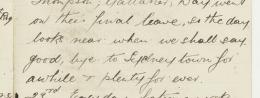 Thompson, Gallaher, Day went
on their final leave, so the day
looks near when we shall say
good, bye to Sydney town for
awhile & plenty for ever.
23rd